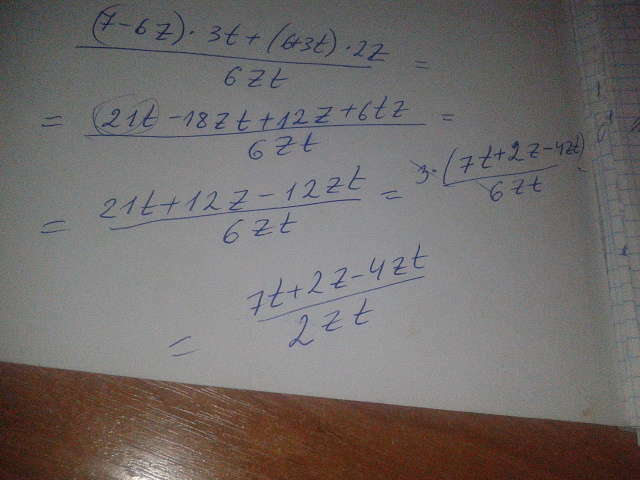 (7-6z)·3t+(6+3t)·2z / 6zt =
= 21t-18zt+12z+6tz / 6zt =
= 21t+12z-12zt / 6zt = 3·(7t+2z-4zt) / 6zt =
= 7t+2z-4zt / 2zt